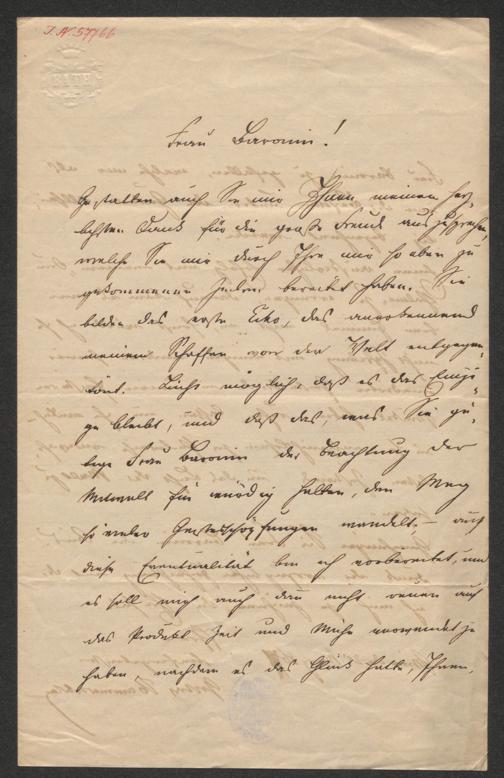 I.N. 57766
BATH
Frau Baronin!
Gestatten auch Sie mir Ihnen meinen herz-
lichsten Dank für die große Freude auszusprechen,
welche Sie mir durch Ihre mir so eben zu
gekommenen Zeilen bereitet haben. Sie
bilden das erste Echo, das anerkennend
meinem Schaffen von der Welt entgegen-
tönt. Leicht möglich, daß es das Einzi-
ge bleibt, und daß das, was Sie gü-
tige Frau Baronin der Beachtung der
Mitwelt für würdig halten, den Weg
so vieler Geistesschöpfungen wandelt, – auf
diese Eventualität bin ich vorbereitet, und
es soll mich auch dann nicht reuen auf
das Produkt Zeit und Mühe verwendet zu
haben, nachdem es das Glück hatte, Ihnen,